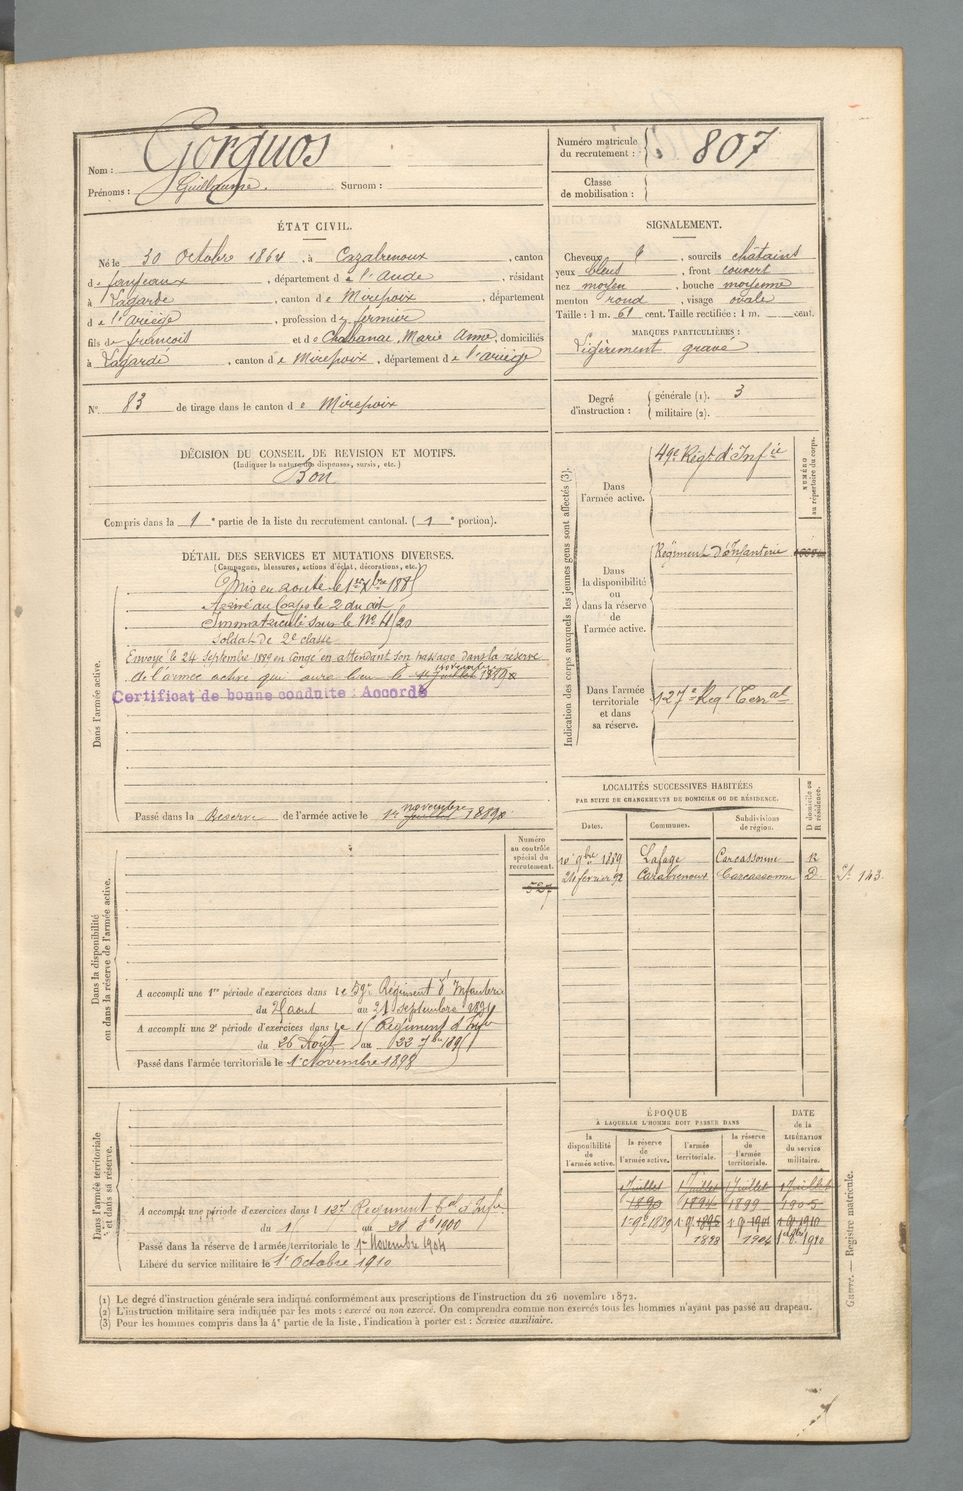 Nom : Gorguos
Prénoms : Guillaume. Surnom :
Numéro matricule du recrutement : 807
Classe de mobilisation :
ÉTAT CIVIL.
Né le 30 Octobre 1864, à Cazalrenoux, canton
de fanjeaux, département de l'Aude, résidant
à Lagarde, canton de Mirepoix, département
de l'ariège, profession de fermier
fils de françois et de Chabanai, Marie Anne, domiciliés
à Lagarde, canton de Mirepoix, département de l'ariège
N° 83 de tirage dans le canton de Mirepoix
SIGNALEMENT.
Cheveux, sourcils châtains
yeux bleus, front couvert
nez moyen, bouche moyenne
menton rond, visage ovale
Taille : 1 m. 61 cent. Taille rectifiée : 1 m. cent.
MARQUES PARTICULIÈRES :
Légèrement gravé
Degré d'instruction : générale (1). 3
militaire (2).
DÉCISION DU CONSEIL DE REVISION ET MOTIFS.
(Indiquer la nature des dispenses, sursis, etc.)
Bon
Compris dans la 1e partie de la liste du recrutement cantonal. (1e portion).
DÉTAIL DES SERVICES ET MUTATIONS DIVERSES.
(Campagnes, blessures, actions d'éclat, décorations, etc.)
Dans l'armée active.
Mis en route le 1er Xbre 1885
Arrivé au Corps le 2 du dit
Immatriculé sous le N° 4520
Soldat de 2e classe
Envoyé le 24 Septembre 1889 en Congé en attendant son passage dans la réserve
de l'armée active qui aura lieu le 1er juillet novembre 1889
Certificat de bonne conduite : Accordé
Passé dans la Réserve de l'armée active le 1er juillet novembre 1889
Indication des corps auxquels les jeunes gens sont affectés (3).
NUMÉRO au répertoire du corps.
Dans l'armée active.
49e Régt d'Infie
Dans la disponibilité ou dans la réserve de l'armée active.
Régiment d'Infanterie
Dans l'armée territoriale et dans sa réserve.
127e Régt Terral
LOCALITÉS SUCCESSIVES HABITÉES
PAR SUITE DE CHANGEMENTS DE DOMICILE OU DE RÉSIDENCE.
Dates. Communes. Subdivisions de région. D domicile ou R résidence.
10 9bre 1889 Lafage Carcassonne R
24 février 92 Cazalrenoux Carcassonne D
143
Dans la disponibilité ou dans la réserve de l'armée active.
Numéro au contrôle spécial du recrutement.
527
A accompli une 1re période d'exercices dans le 59e Régiment d'Infanterie
du 2 aout au 21 septembre 1891
A accompli une 2e période d'exercices dans le 15 Régiment d'Infie
du 26 Août au 22 7bre 1895
Passé dans l'armée territoriale le 1er Novembre 1898
Dans l'armée territoriale et dans sa réserve.
A accompli une période d'exercices dans le 127 Régiment tal d'Infie
du 15 au 28 8bre 1900
Passé dans la réserve de l'armée territoriale le 1er Novembre 1904
Libéré du service militaire le 1er Octobre 1910
ÉPOQUE
À LAQUELLE L'HOMME DOIT PASSER DANS
la disponibilité de l'armée active. la réserve de l'armée active. l'armée territoriale. la réserve de l'armée territoriale.
DATE de la LIBÉRATION du service militaire.
1 Juillet 1 Juillet 1 Juillet 1 Juillet
1890 1894 1899 1905
1 9e 1889 1 9 1895 1 9 1901 1 9 1910
1898 1904 1er 8bre 1910
(1) Le degré d'instruction générale sera indiqué conformément aux prescriptions de l'instruction du 26 novembre 1872.
(2) L'instruction militaire sera indiquée par les mots : exercé ou non exercé. On comprendra comme non exercés tous les hommes n'ayant pas passé au drapeau.
(3) Pour les hommes compris dans la 4e partie de la liste, l'indication à porter est : Service auxiliaire.
Guerre. — Registre matricule.